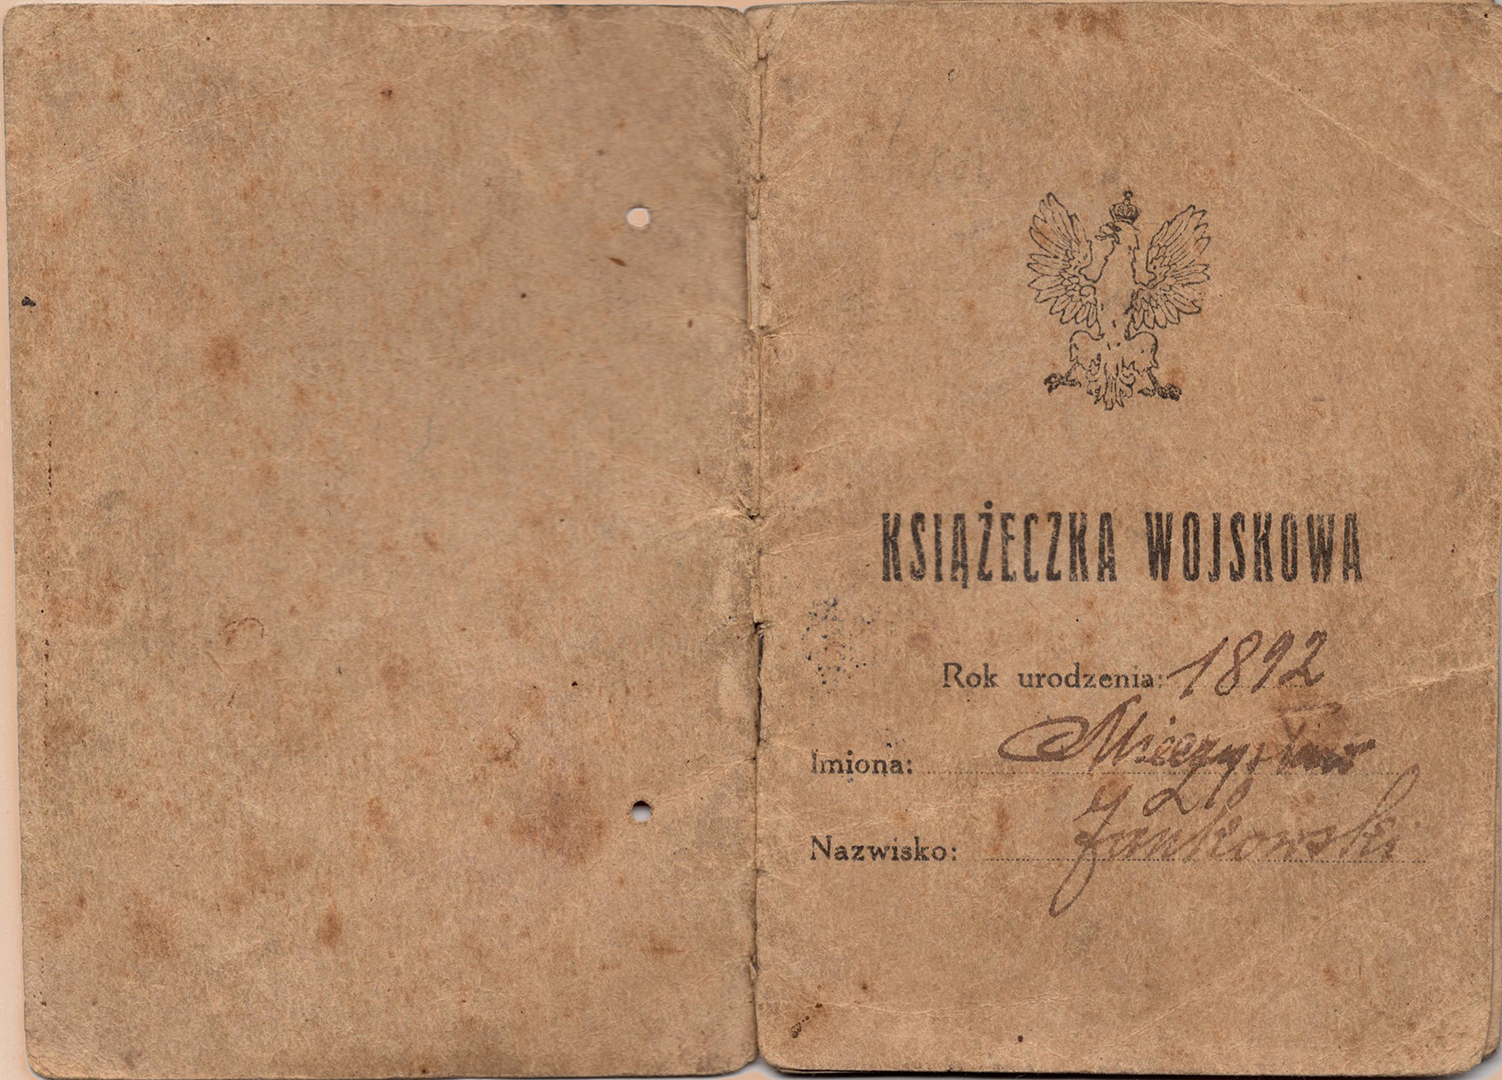 KSIĄŻECZKA WOJSKOWA
Rok urodzenia: 1892
Imiona: Mieczysław
Nazwisko: Jankowski